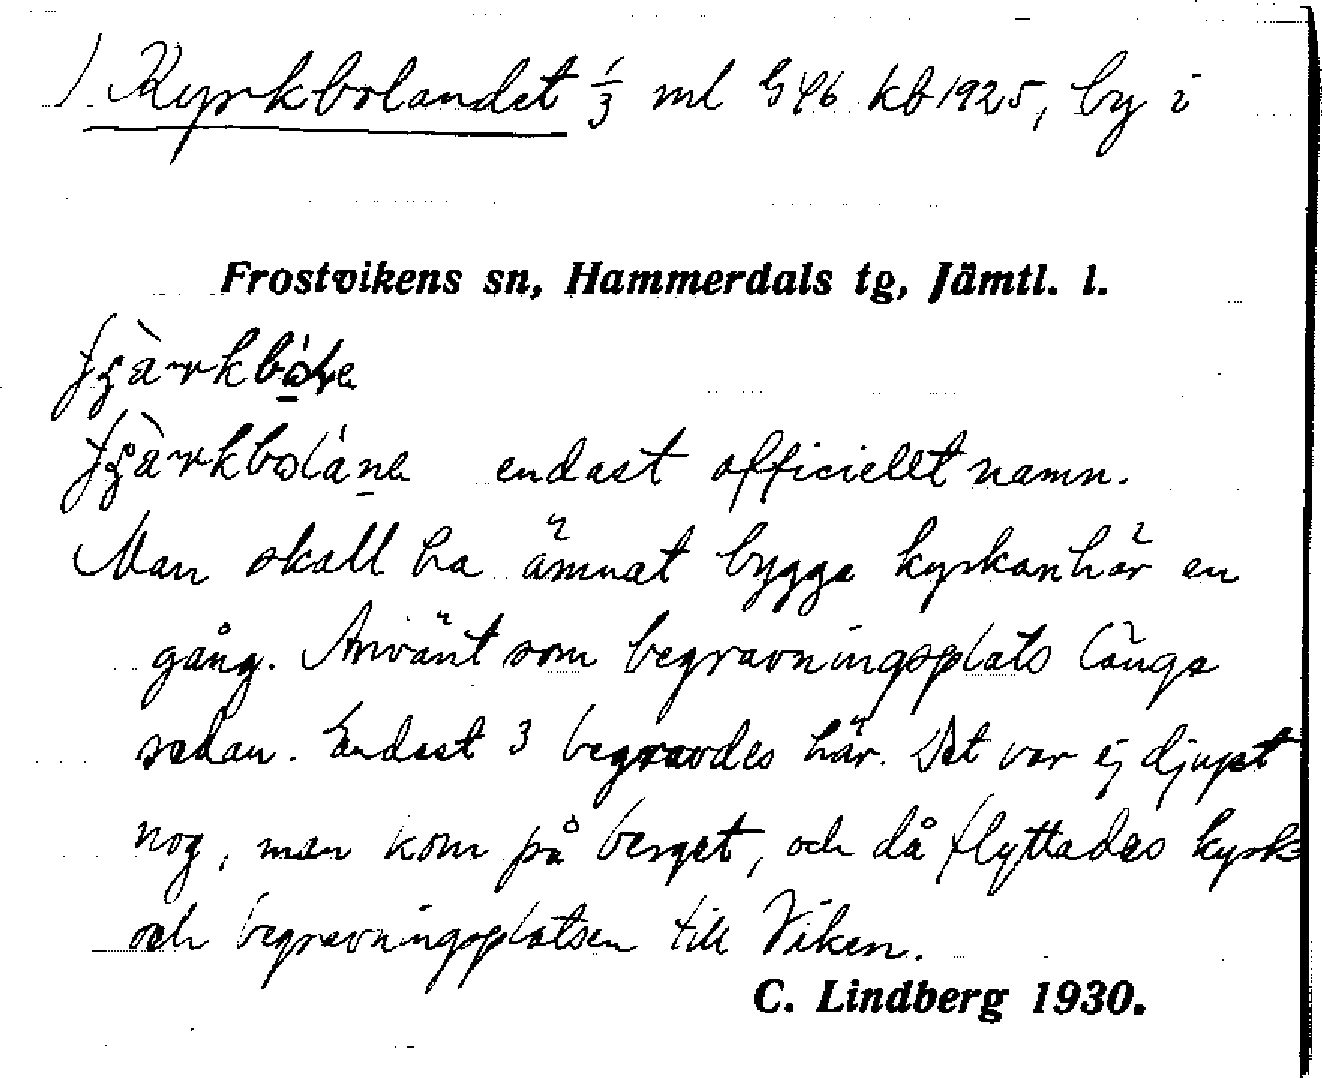 1. Kyrkbolandet 1/3 ml G4b kb 1925, by i
Frostvikens sn, Hammerdals tg, Jämtl. l.
endast officiellt namn.
Man skall ha ämnat bygga kyrkan här en
gång. Använt som begravningsplats långa
sedan. Endast 3 begravdes här. Det var ej djupt
nog, man kom på berget, och då flyttades kyrk
och begravningsplatsen till Viken.
C. Lindberg 1930.